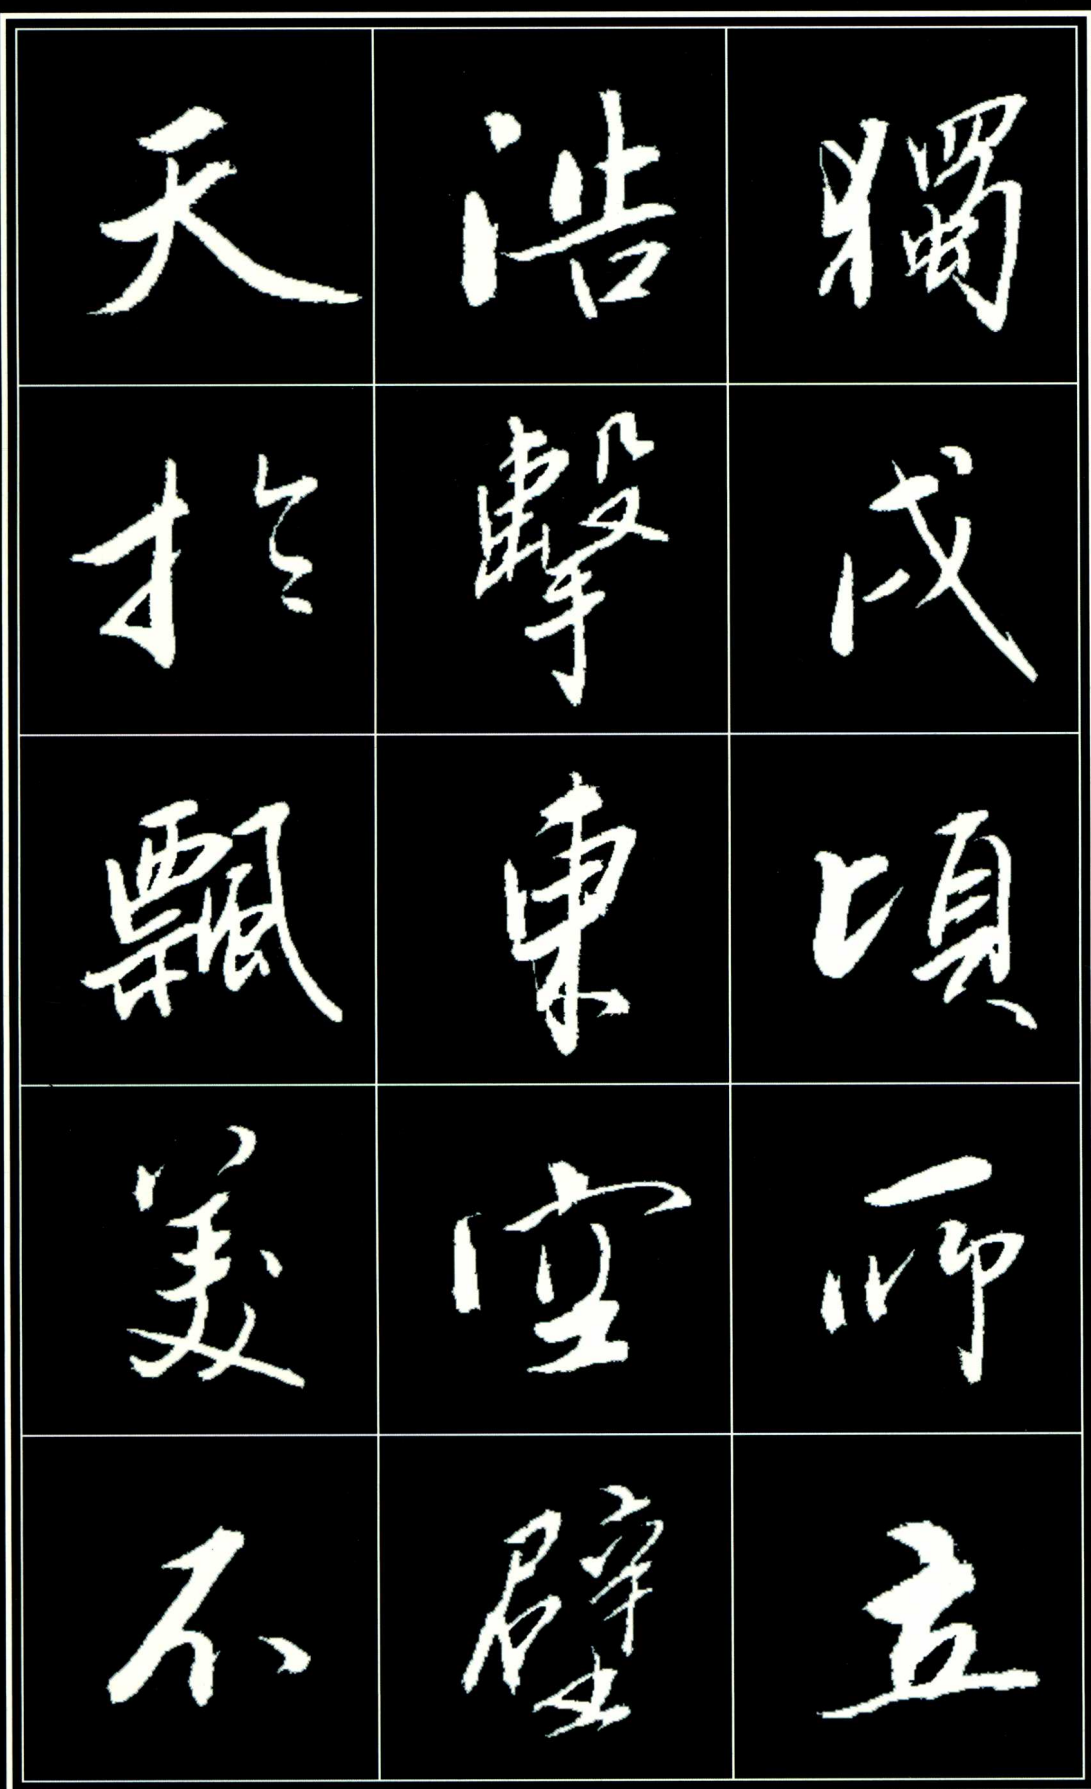 獨戍頃所立
浩擊東空壁
天於飄美不